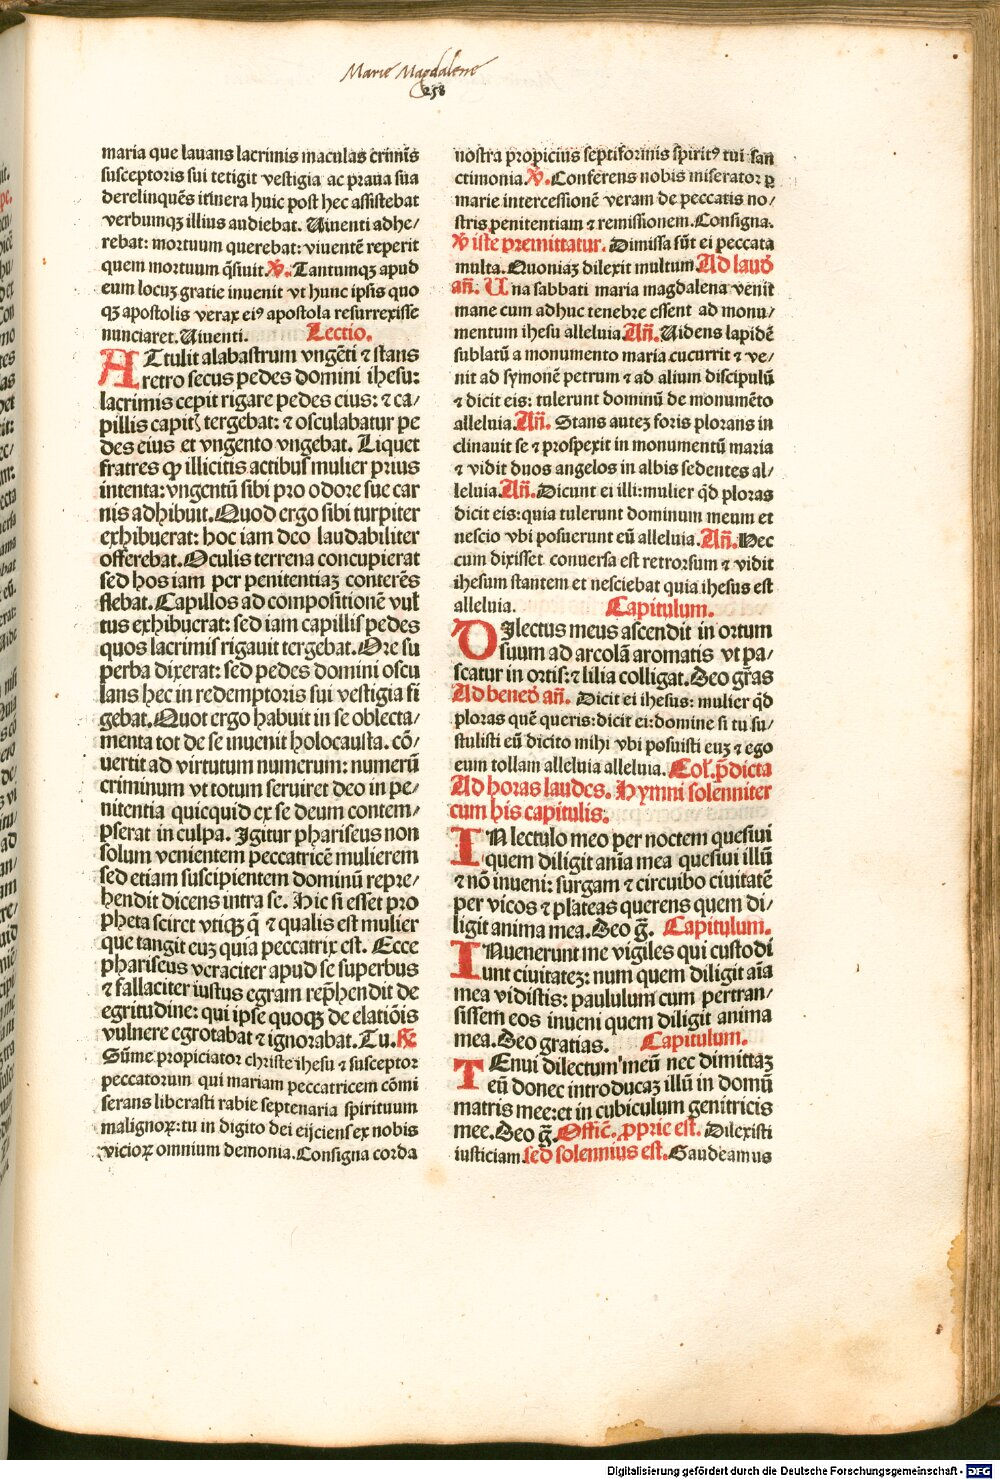 Marie Magdalene
258
maria que lauans lacrimis maculas crimīs
susceptoris sui tetigit vestigia ac praua sua
derelinquēs itinera huic post hec assistebat
verbumqꝫ illius audiebat. Uiuenti adhe/
rebat: mortuum querebat: viuentē reperit
quem mortuum q̄siuit. ℣. Tantumqꝫ apud
eum locuꝫ gratie inuenit vt hunc ipsis quo
qꝫ apostolis verax eiꝰ apostola resurrexisse
nunciaret. Uiuenti. Lectio.
ATtulit alabastrum vngēti ⁊ stans
retro secus pedes domini ihesu:
lacrimis cepit rigare pedes eius: ⁊ ca/
pillis capitꝭ tergebat: ⁊ osculabatur pe
des eius et vngento vngebat. Liquet
fratres ꝙ illicitis actibus mulier prius
intenta: vngentū sibi pro odore sue car
nis adhibuit. Quod ergo sibi turpiter
exhibuerat: hoc iam deo laudabiliter
offerebat. Oculis terrena concupierat
sed hos iam per penitentiaꝫ conterēs
flebat. Capillos ad compositionē vul
tus exhibuerat: sed iam capillis pedes
quos lacrimis rigauit tergebat. Ore su
perba dixerat: sed pedes domini oscu
lans hec in redemptoris sui vestigia fi
gebat. Quot ergo habuit in se oblecta/
menta tot de se inuenit holocausta. cō/
uertit ad virtutum numerum: numerū
criminum vt totum seruiret deo in pe/
nitentia quicquid ex se deum contem/
pserat in culpa. Igitur phariseus non
solum venientem peccatricē mulierem
sed etiam suscipientem dominū repre/
hendit dicens intra se. Hic si esset pro
pheta sciret vtiqꝫ q̄ ⁊ qualis est mulier
que tangit euꝫ quia peccatrix est. Ecce
phariseus veraciter apud se superbus
⁊ fallaciter iustus egram rep̄hendit de
egritudine: qui ipse quoqꝫ de elatiōis
vulnere egrotabat ⁊ ignorabat. Tu. ℟
Sūme propiciator christe ihesu ⁊ susceptor
peccatorum qui mariam peccatricem cōmi
serans liberasti rabie septenaria spirituum
malignoꝝ: tu in digito dei eijciens ex nobis
vicioꝝ omnium demonia. Consigna corda
nostra propicius septiformis spiritꝰ tui san
ctimonia. ℣. Conferens nobis miserator ꝑ
marie intercessionē veram de peccatis no/
stris penitentiam ⁊ remissionem. Consigna.
℣ iste premittatur. Dimissa sūt ei peccata
multa. Quoniaꝫ dilexit multum. Ad laud̄
an̄. Una sabbati maria magdalena venit
mane cum adhuc tenebre essent ad monu/
mentum ihesu alleluia. An̄. Uidens lapidē
sublatū a monumento maria cucurrit ⁊ ve/
nit ad symonē petrum ⁊ ad alium discipulū
⁊ dicit eis: tulerunt dominū de monumēto
alleluia. An̄. Stans auteꝫ foris plorans in
clinauit se ⁊ prospexit in monumentū maria
⁊ vidit duos angelos in albis sedentes al/
leluia. An̄. Dicunt ei illi: mulier qd̄ ploras
dicit eis: quia tulerunt dominum meum et
nescio vbi posuerunt eū alleluia. An̄. Hec
cum dixisset conuersa est retrorsum ⁊ vidit
ihesum stantem et nesciebat quia ihesus est
alleluia. Capitulum.
DIlectus meus ascendit in ortum
suum ad arcolā aromatis vt pa/
scatur in ortis: ⁊ lilia colligat. Deo gr̄as
Ad bened̄ an̄. Dicit ei ihesus: mulier qd̄
ploras quē queris: dicit ei: domine si tu su/
stulisti eū dicito mihi vbi posuisti euꝫ ⁊ ego
eum tollam alleluia alleluia. Col̄. p̄dicta
Ad horas laudes. Hymni solenniter
cum his capitulis.
IN lectulo meo per noctem quesiui
quem diligit anīa mea quesiui illū
⁊ nō inueni: surgam ⁊ circuibo ciuitatē
per vicos ⁊ plateas querens quem di/
ligit anima mea. Deo g̅. Capitulum.
INuenerunt me vigiles qui custodi
unt ciuitateꝫ: num quem diligit aīa
mea vidistis: paululum cum pertran/
sissem eos inueni quem diligit anima
mea. Deo gratias. Capitulum.
TEnui dilectum meū nec dimittaꝫ
eū donec introducaꝫ illū in domū
matris mee: et in cubiculum genitricis
mee. Deo g̅. Offic̄. ꝓprie est. Dilexisti
iusticiam. sed solennius est. Gaudeamus
Digitalisierung gefördert durch die Deutsche Forschungsgemeinschaft - DFG